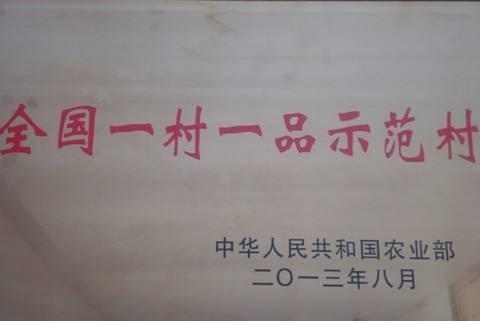 全国一村一品示范村
中华人民共和国农业部
二〇一三年八月